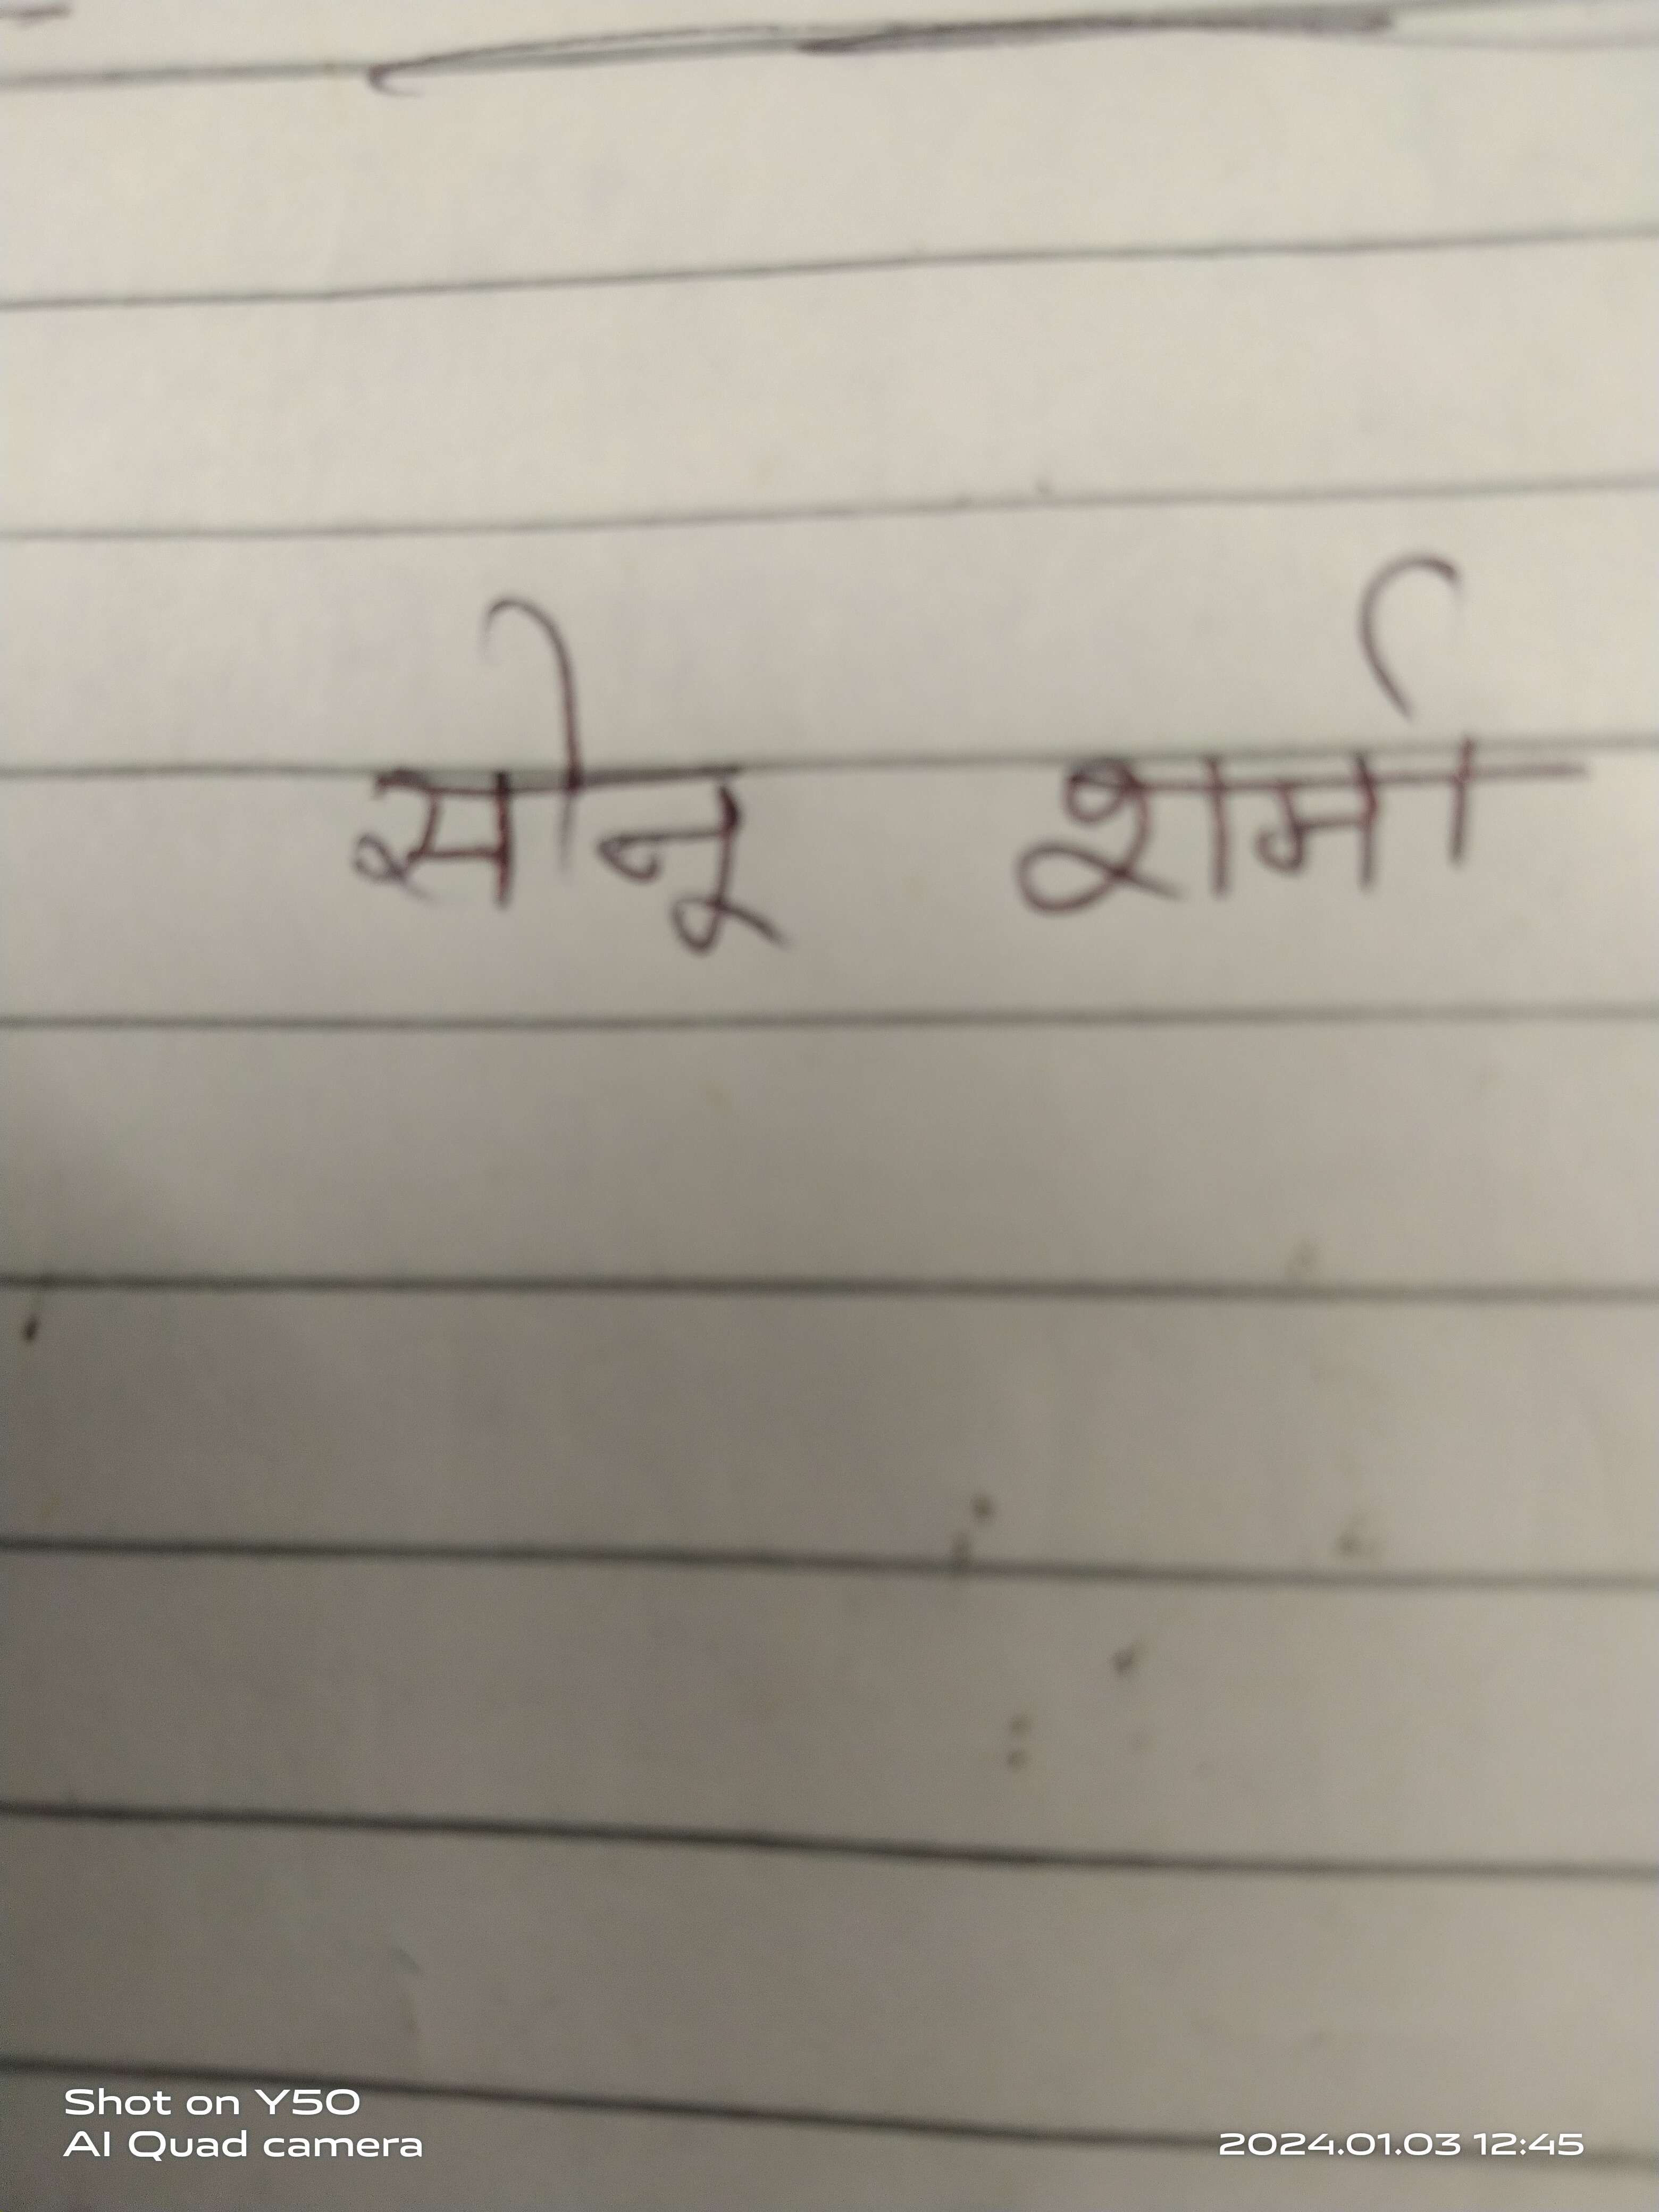 सोनू शर्मा
Shot on Y50
AI Quad camera
2024.01.03 12:45